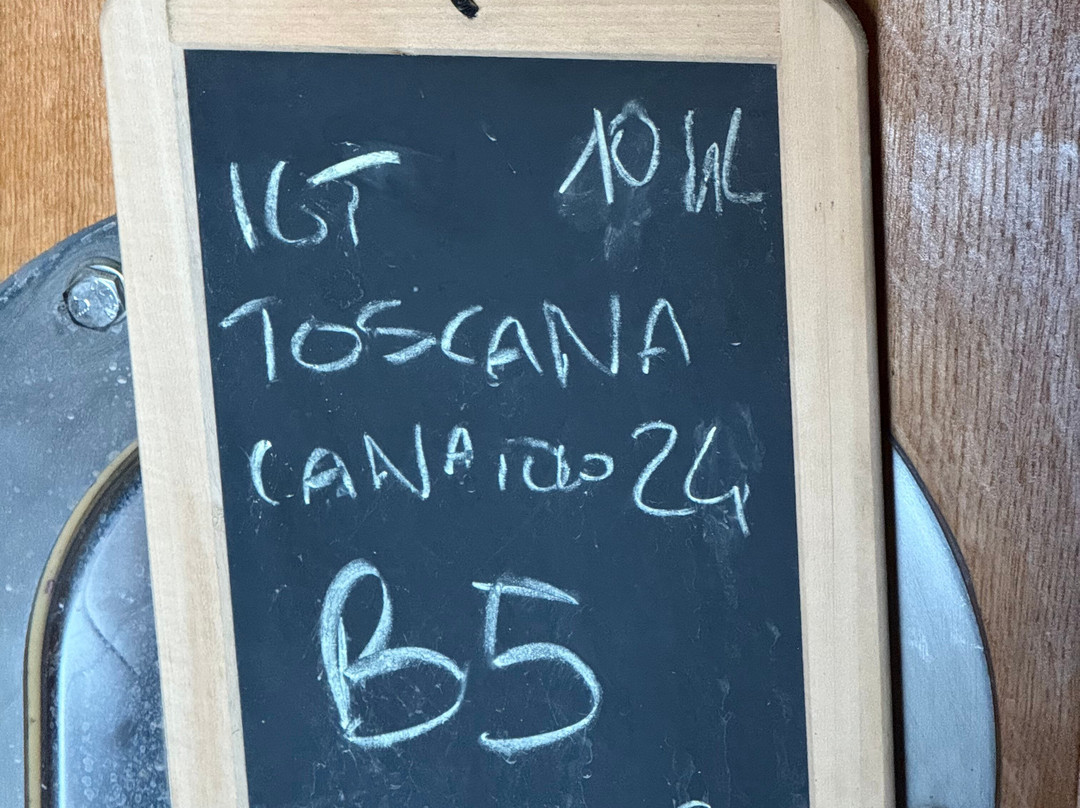 IGT 10 hL
TOSCANA
CANAIOLO 24
B5